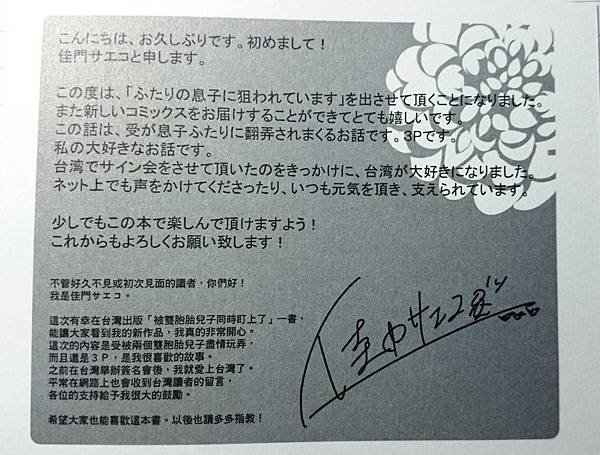 こんにちは、お久しぶりです。初めまして！
佳門サエコと申します。
この度は、「ふたりの息子に狙われています」を出させて頂くことになりました。
また新しいコミックスをお届けすることができてとても嬉しいです。
この話は、受が息子ふたりに翻弄されまくるお話です。3Pです。
私の大好きなお話です。
台湾でサイン会をさせて頂いたのをきっかけに、台湾が大好きになりました。
ネット上でも声をかけてくださったり、いつも元気を頂き、支えられています。
少しでもこの本で楽しんで頂けますよう！
これからもよろしくお願い致します！
不管好久不見或初次見面的讀者，你們好！
我是佳門サエコ。
這次有幸在台灣出版「被雙胞胎兒子同時盯上了」一書，
能讓大家看到我的新作品，我真的非常開心。
這次的內容是受被兩個雙胞胎兒子盡情玩弄，
而且還是３Ｐ，是我很喜歡的故事。
之前在台灣舉辦簽名會後，我就愛上台灣了。
平常在網路上也會收到台灣讀者的留言，
各位的支持給予我很大的鼓勵。
希望大家也能喜歡這本書。以後也請多多指教！